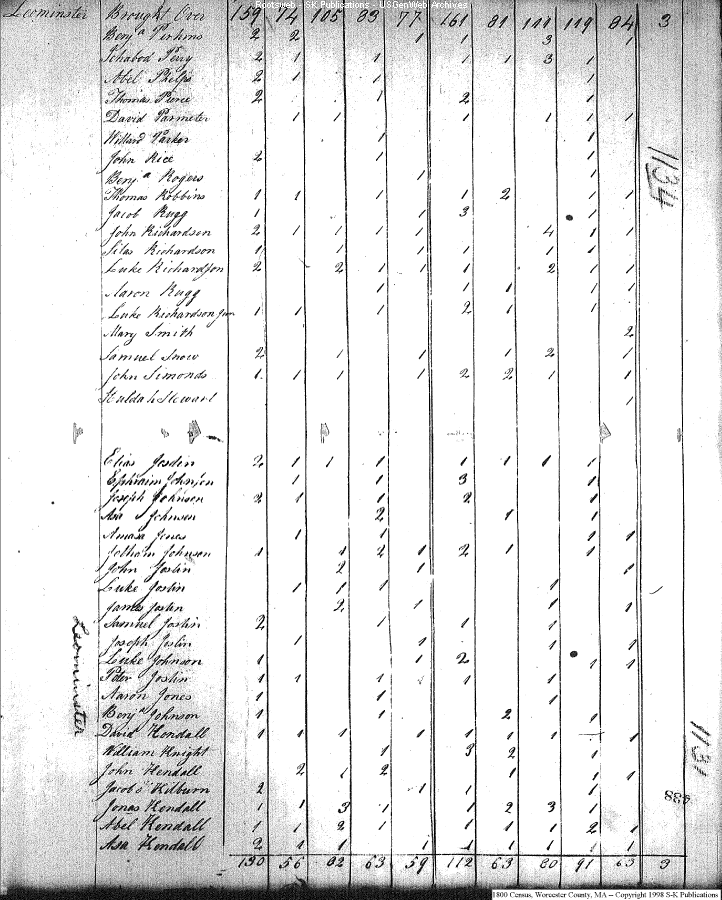 Rootsweb - S-K Publications - USGenWeb Archives
Leominster Brought Over 159 74 105 83 77 161 81 111 119 84 3
Benja Perkins 2 2 1 1 3 1
Ichabod Perry 2 1 1 1 1 3 1
Abel Phelps 2 1 1 1
Thomas Pierce 2 1 2 1
David Parmeter 1 1 1 1 1 1
Willard Parker 1 1
John Rice 2 1 1
Benja Rogers 1 1
Thomas Robbins 1 1 1 1 2 1 1
Jacob Rugg 1 1 3 1 1
John Richardson 2 1 1 1 1 4 1 1
Silas Richardson 1 1 1 1 1 1 1
Luke Richardson 2 2 1 1 1 2 1 1
Aaron Rugg 1 1 1 1 1
Luke Richardson Jun 1 1 1 2 1 1
Mary Smith 2
Samuel Snow 2 1 1 1 2 1
John Simonds 1 1 1 1 2 2 1 1
Huldah Stewart 1
1134
Elias Joslin 2 1 1 1 1 1 1 1
Ephraim Johnson 1 1 3 1
Joseph Johnson 2 1 1 2 1
Asa Johnson 2 1 1
Amasa Jones 1 1 1 1
Jotham Johnson 1 1 2 1 2 1 1
John Joslin 2 1 1
Luke Joslin 1 1 1 1
James Joslin 2 1 1 1
Samuel Joslin 2 1 1 1
Joseph Joslin 1 1 1 1
Luke Johnson 1 1 2 1 1
Peter Joslin 1 1 1 1 1
Aaron Jones 1 1 1
Benja Johnson 1 1 2 1
David Kendall 1 1 1 1 1 1 1 1
William Knight 1 3 2 1
John Kendall 2 1 2 1 1 1
Jacob Kilburn 2 1 1 1
Jonas Kendall 1 1 3 1 1 2 3 1
Abel Kendall 1 1 2 1 1 1 1 2 1
Asa Kendall 2 1 1 1 1 1 1 1 1
130 56 82 63 59 112 63 80 91 63 3
Leominster
1131
838
1800 Census, Worcester County, MA -- Copyright 1998 S-K Publications